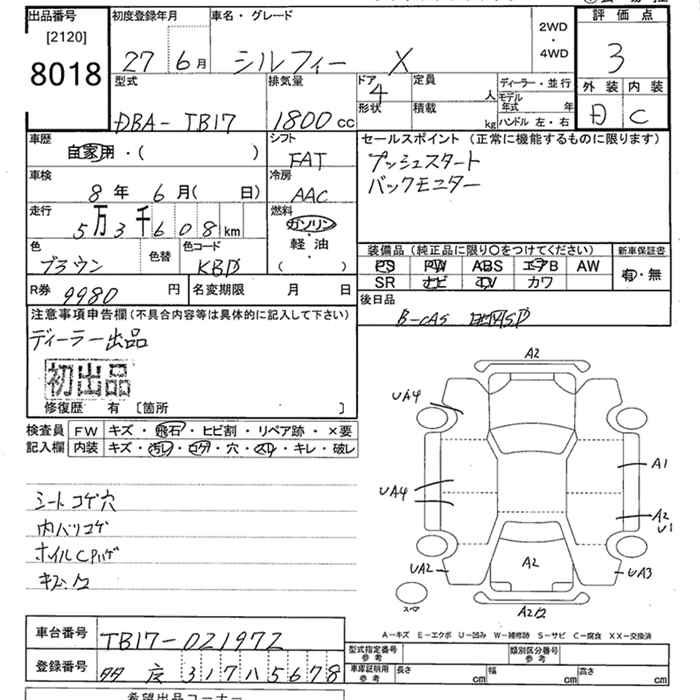 出品番号 初度登録年月 車名・グレード 2WD・4WD 評価点
[2120]
8018 27 6月 シルフィー X 3
型式 排気量 ドア 定員 ディーラー・並行 外装 内装
4 人 モデル年式 年
形状 積載 kg ハンドル 左・右
DBA- TB17 1800 cc D C
車歴 シフト セールスポイント (正常に機能するものに限ります)
自家用・( ) FAT プッシュスタート
車検 冷房 バックモニター
8年 6月( 日) AAC
走行 燃料
5万3千608km ガソリン・軽油
色 色替 色コード ( )
ブラウン KBD
装備品 (純正品に限り○をつけてください) 新車保証書
PS PW ABS エアB AW 有・無
SR ナビ TV カワ
R券 9980円 名変期限 月 日 後日品
注意事項申告欄(不具合内容等は具体的に記入して下さい) B-CAS
ディーラー出品
初出品
修復歴 有 [箇所 ]
検査員 FW キズ・飛石・ヒビ割・リペア跡・×要
記入欄 内装 キズ・汚レ・コゲ・穴・スレ・キレ・破レ
シートコゲ穴
内バリコゲ
ホイルCPハゲ
A2
UA4
UA4
A1
A2
U1
UA2
A2
UA3
スペア
車台番号 TB17-021972
登録番号 317 ハ 5678
A-キズ E-エクボ U-凹み W-補修跡 S-サビ C-腐食 XX-交換済
型式指定番号 参考 類別区分番号 参考
車庫証明用 参考 長さ cm 幅 cm 高さ cm
希望出品コーナー